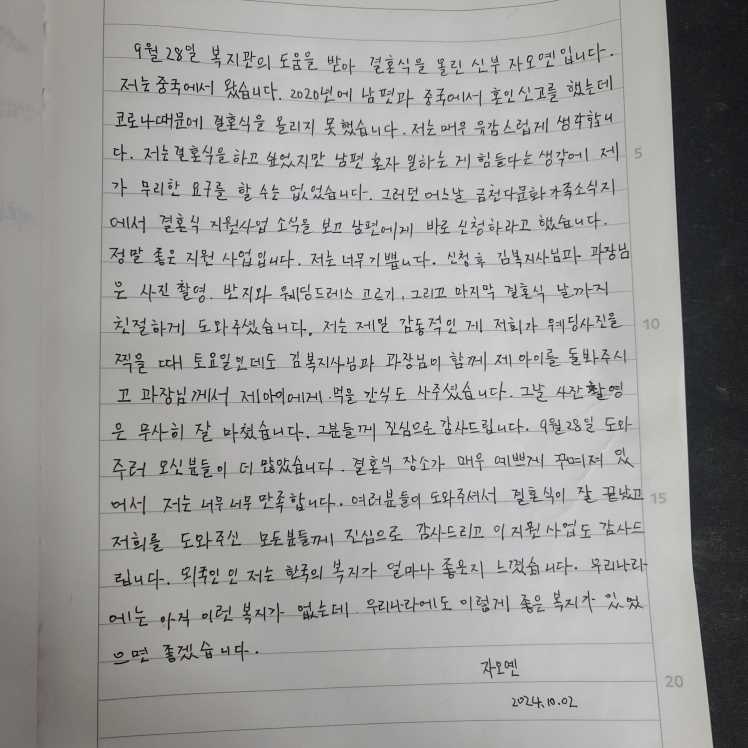 9월 28일 복지관의 도움을 받아 결혼식을 올린 신부 자오옌입니다.
저는 중국에서 왔습니다. 2020년에 남편과 중국에서 혼인신고를 했는데
코로나때문에 결혼식을 올리지 못했습니다. 저는 매우 유감스럽게 생각합니
다. 저는 결혼식을 하고 싶었지만 남편 혼자 일하는 게 힘들다는 생각에 제
가 무리한 요구를 할 수는 없었습니다. 그러던 어느날 금천다문화가족소식지
에서 결혼식 지원사업 소식을 보고 남편에게 바로 신청하라고 했습니다.
정말 좋은 지원 사업입니다. 저는 너무 기쁩니다. 신청 후 김복지사님과 과장님
은 사진 촬영. 반지와 웨딩드레스 고르기, 그리고 마지막 결혼식 날까지
친절하게 도와주셨습니다. 저는 제일 감동적인 게 저희가 웨딩사진을
5
10
찍을 때 토요일인데도 김복지사님과 과장님이 함께 제 아이를 돌봐주시
고 과장님께서 제 아이에게 먹을 간식도 사주셨습니다. 그날 사진 촬영
은 무사히 잘 마쳤습니다. 그분들께 진심으로 감사드립니다. 9월 28일 도와
주러 오신분들이 더 많았습니다. 결혼식 장소가 매우 예쁘게 꾸며져 있
어서 저는 너무 너무 만족합니다. 여러분들이 도와주셔서 결혼식이 잘 끝났고
15
저희를 도와주신 모든분들께 진심으로 감사드리고 이 지원 사업도 감사드
립니다. 외국인 인 저는 한국의 복지가 얼마나 좋은지 느꼈습니다. 우리나라
에는 아직 이런 복지가 없는데 우리나라에도 이렇게 좋은 복지가 있었
으면 좋겠습니다.
자오옌
20
2024.10.02